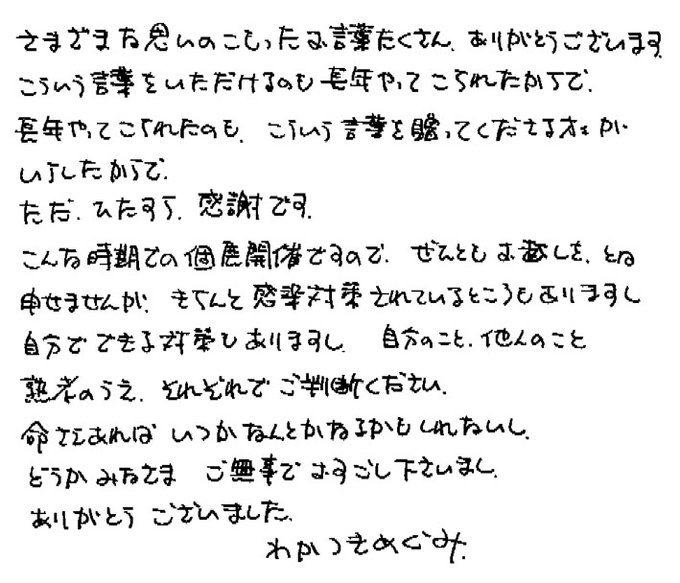 さまざまな思いのこもったお言葉たくさん、ありがとうございます。
こういう言葉をいただけるのも長年やってこられたからで、
長年やってこられたのも、こういう言葉を贈ってくださる方々が
いらしたからで、
ただ、ひたすら、感謝です。
こんな時期での個展開催ですので、ぜひともお越しを、とは
申せませんが、きちんと感染対策されているところもありますし
自分でできる対策もありますし、自分のこと、他人のこと
熟考のうえ、それぞれでご判断ください。
命さえあればいつかなんとかなるかもしれないし、
どうかみなさまご無事でおすごし下さいまし。
ありがとうございました。
わかつきめぐみ.